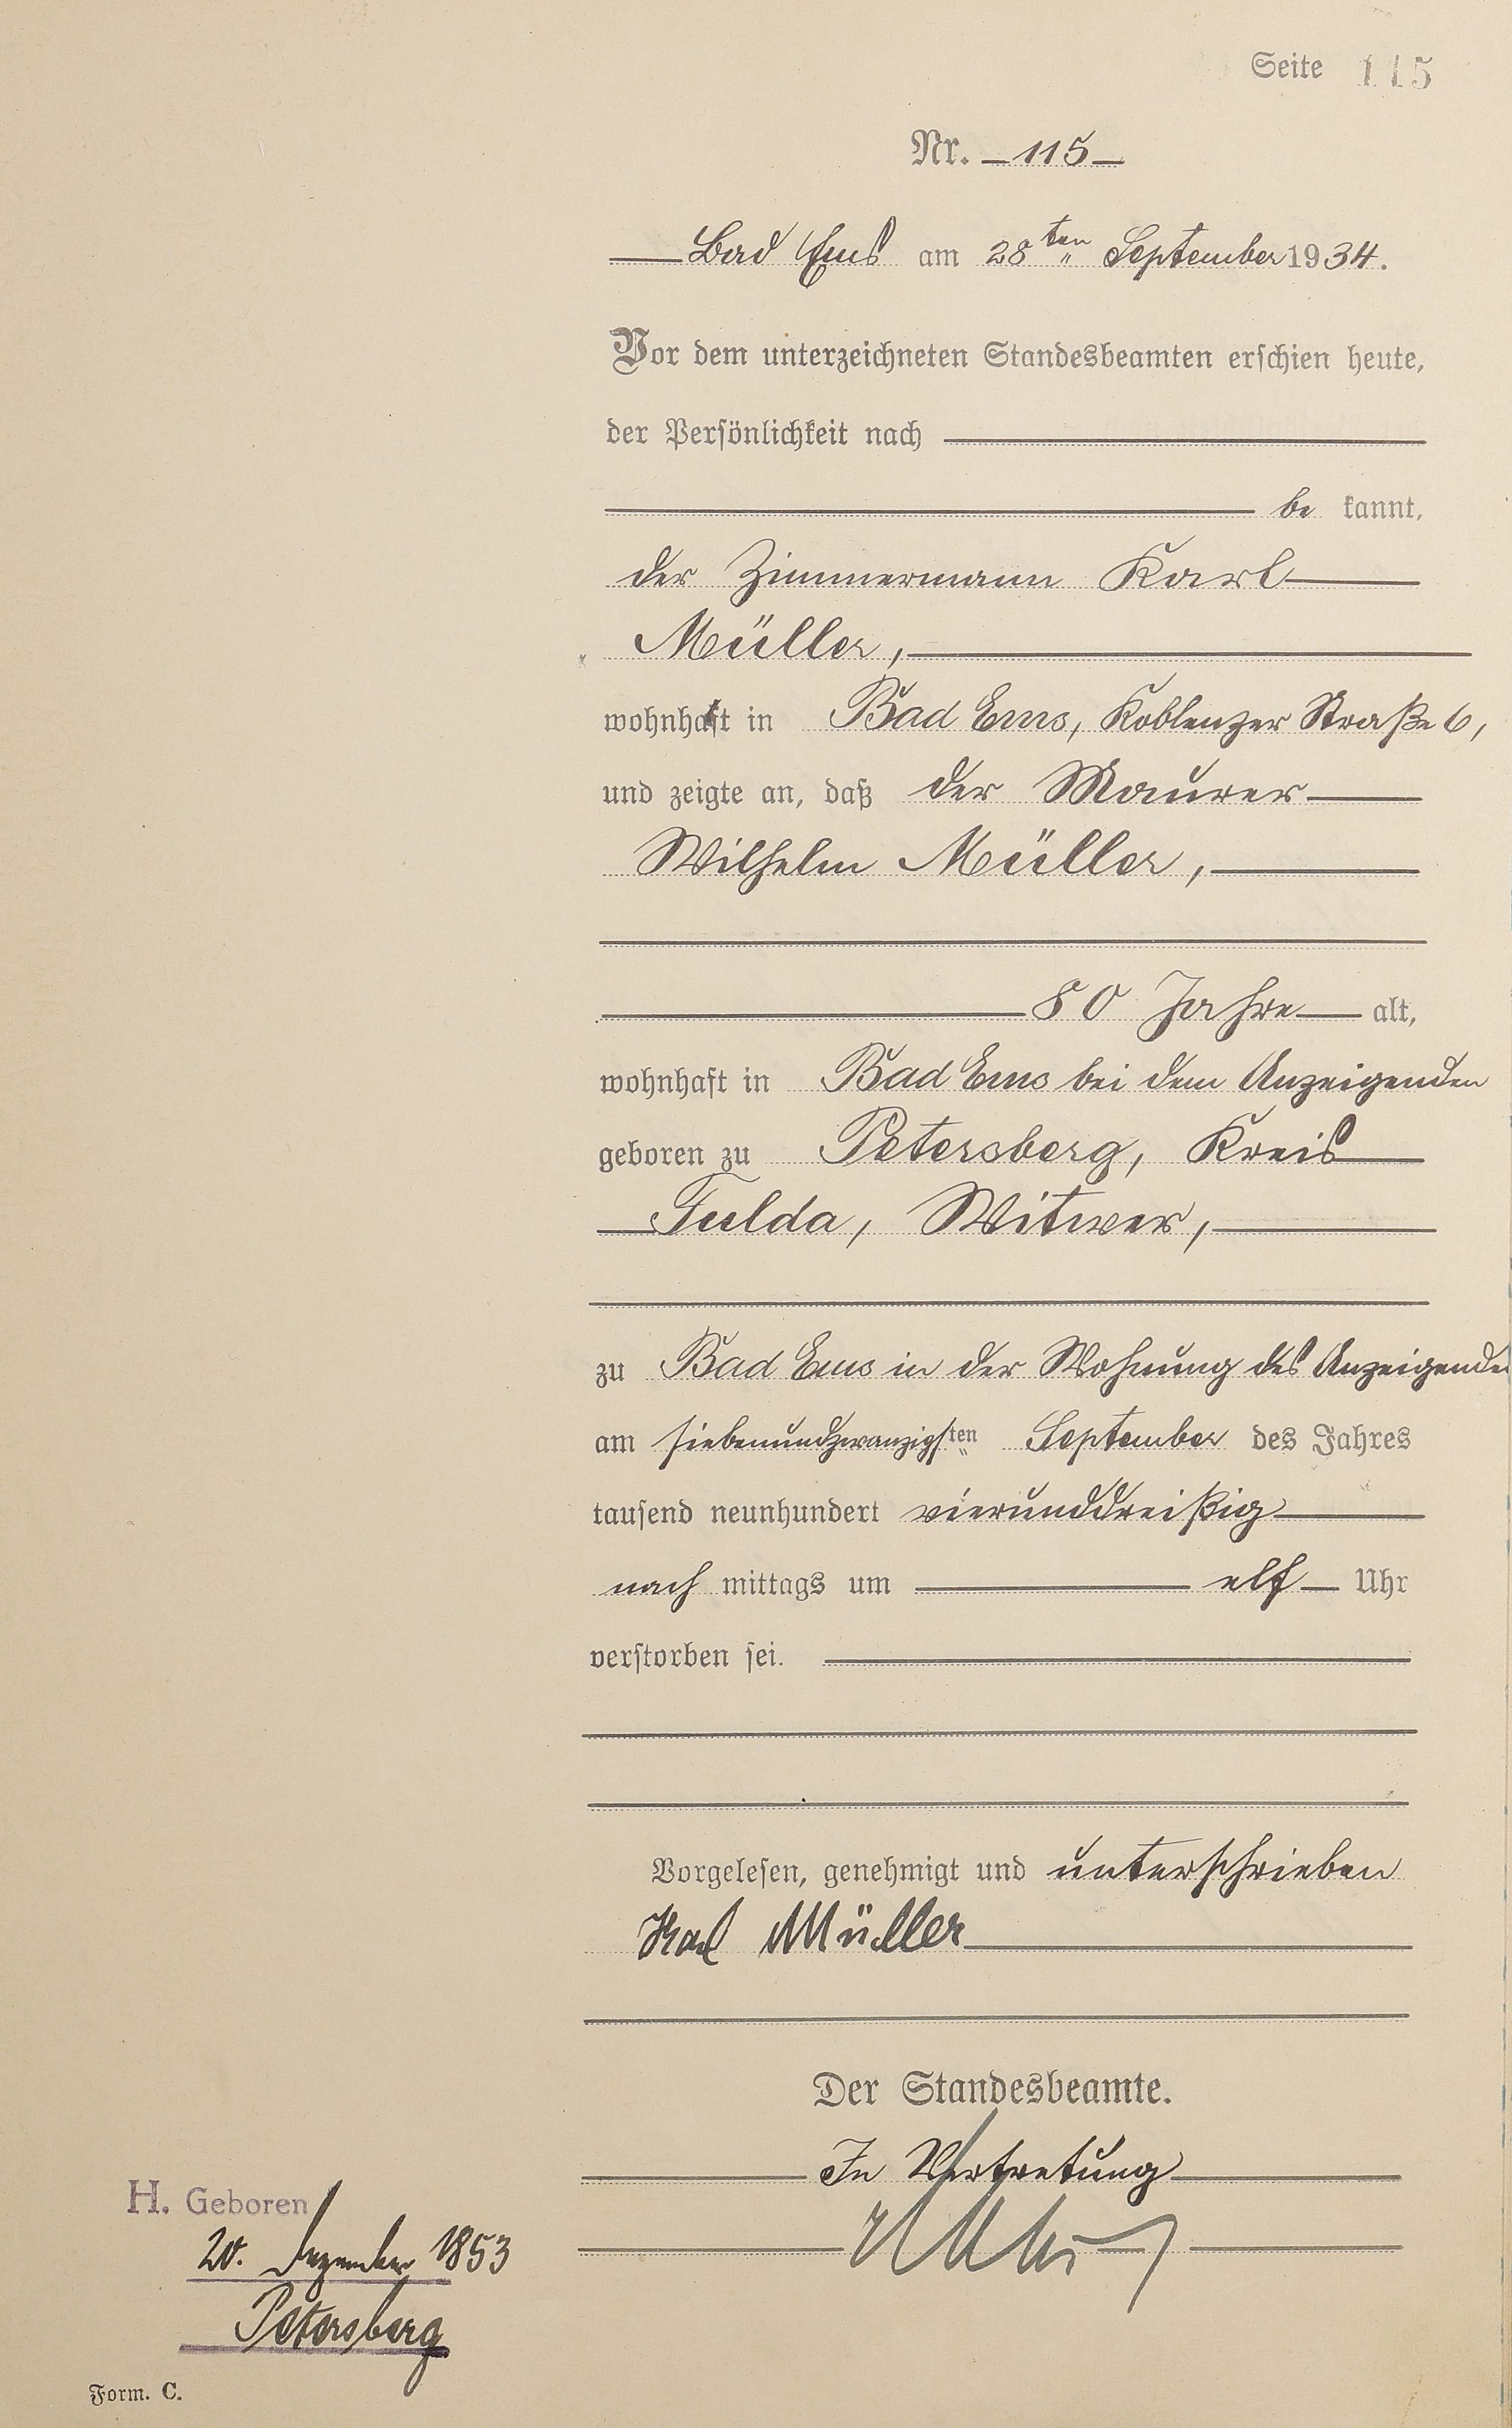 Seite 115
Nr. 115
Bad Ems am 28ten September 1934.
Vor dem unterzeichneten Standesbeamten erschien heute,
der Persönlichkeit nach
be kannt,
der Zimmermann Karl
Müller,
wohnhaft in Bad Ems, Koblenzer Straße 6,
und zeigte an, daß der Maurer
Wilhelm Müller,
80 Jahre alt,
wohnhaft in Bad Ems bei dem Anzeigenden
geboren zu Petersberg, Kreis
Fulda, Witwer,
zu Bad Ems in der Wohnung des Anzeigenden
am siebenundzwanzigsten September des Jahres
tausend neunhundert vierunddreißig
nach mittags um elf Uhr
verstorben sei.
Vorgelesen, genehmigt und unterschrieben
Karl Müller
Der Standesbeamte.
In Vertretung
H. Geboren
20. Dezember 1853
Petersberg
Form. C.